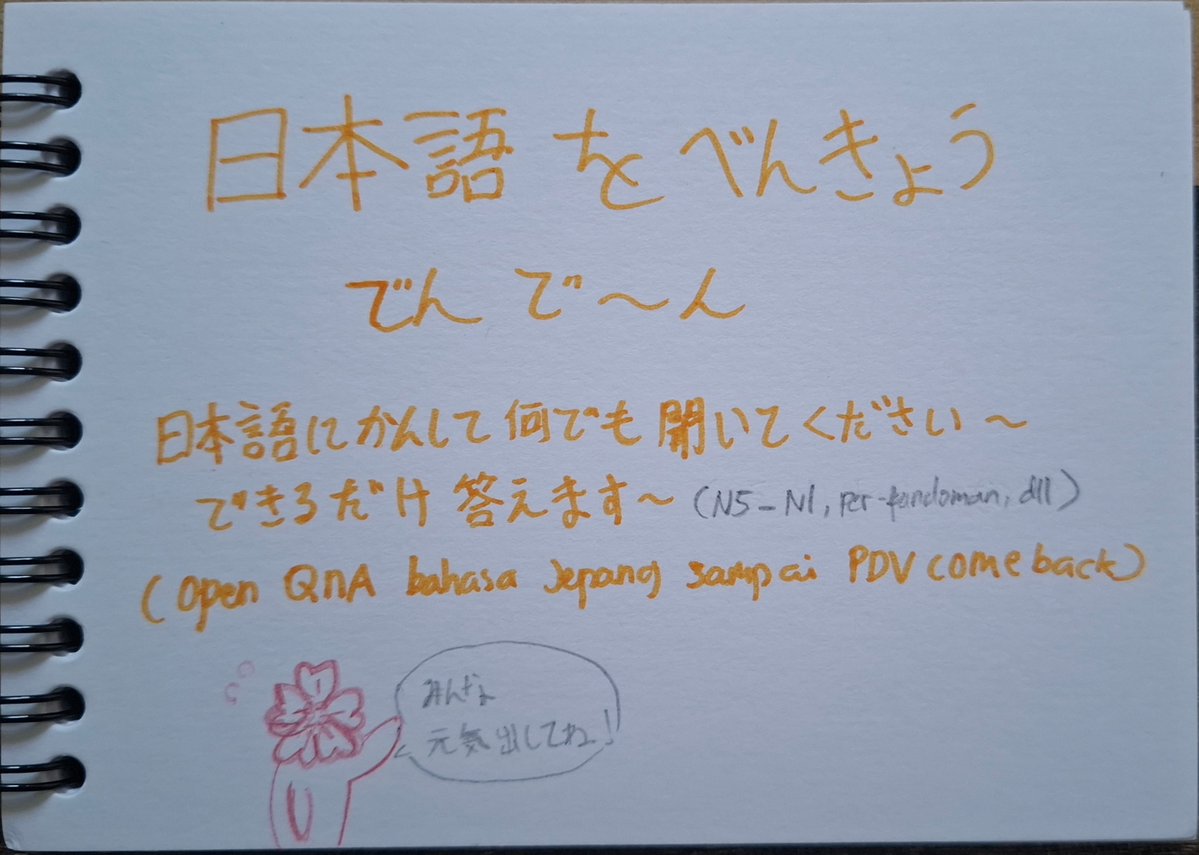 日本語をべんきょう
でんで～ん
日本語にかんして何でも開いてください～
できるだけ答えます～ (N5-N1, per-fandoman, dll)
(Open QnA bahasa Jepang sampai PDV comeback)
みんな
元気出してね!